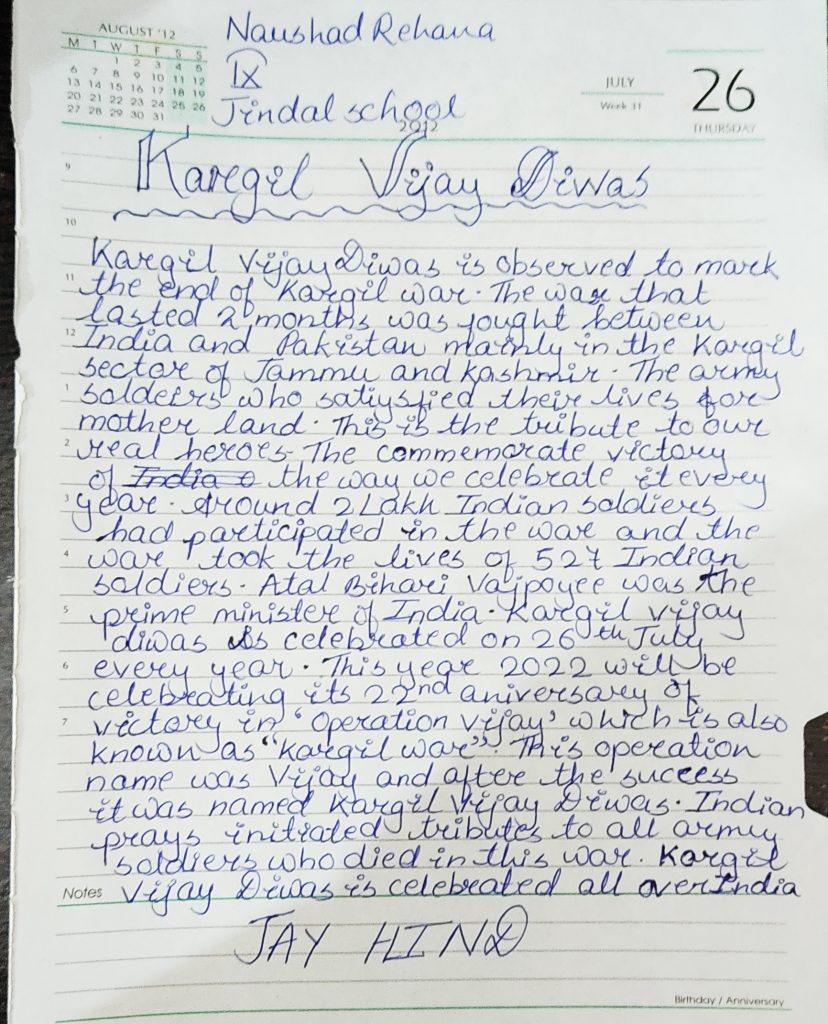 AUGUST '12
M T W T F S S
1 2 3 4 5
6 7 8 9 10 11 12
13 14 15 16 17 18 19
20 21 22 23 24 25 26
27 28 29 30 31
Naushad Rehana
IX
Jindal school
2012
JULY
Week 31
26
THURSDAY
Kargil Vijay Diwas
9
10
Kargil Vijay Diwas is observed to mark
11 the end of Kargil war. The war that
lasted 2 months was fought between
12 India and Pakistan mainly in the Kargil
sector of Jammu and Kashmir. The army
1 soldeirs who satiysfied their lives for
mother land. This is the tribute to our
2 real heroes. The commemorate victory
of India the way we celebrate it every
3 year. Around 2 Lakh Indian soldiers
had participated in the war and the
4 war took the lives of 527 Indian
soldiers. Atal Bihari Vajpoyee was the
5 prime minister of India. Kargil vijay
diwas is celebrated on 26th July
6 every year. This year 2022 will be
celebrating its 22nd aniversary of
7 victory in 'Operation Vijay' which is also
known as "Kargil war". This operation
name was Vijay and after the success
it was named Kargil Vijay Diwas. Indian
prays initiated tributes to all army
soldiers who died in this war. Kargil
Notes Vijay Diwas is celebrated all over India
JAY HIND
Birthday / Anniversary